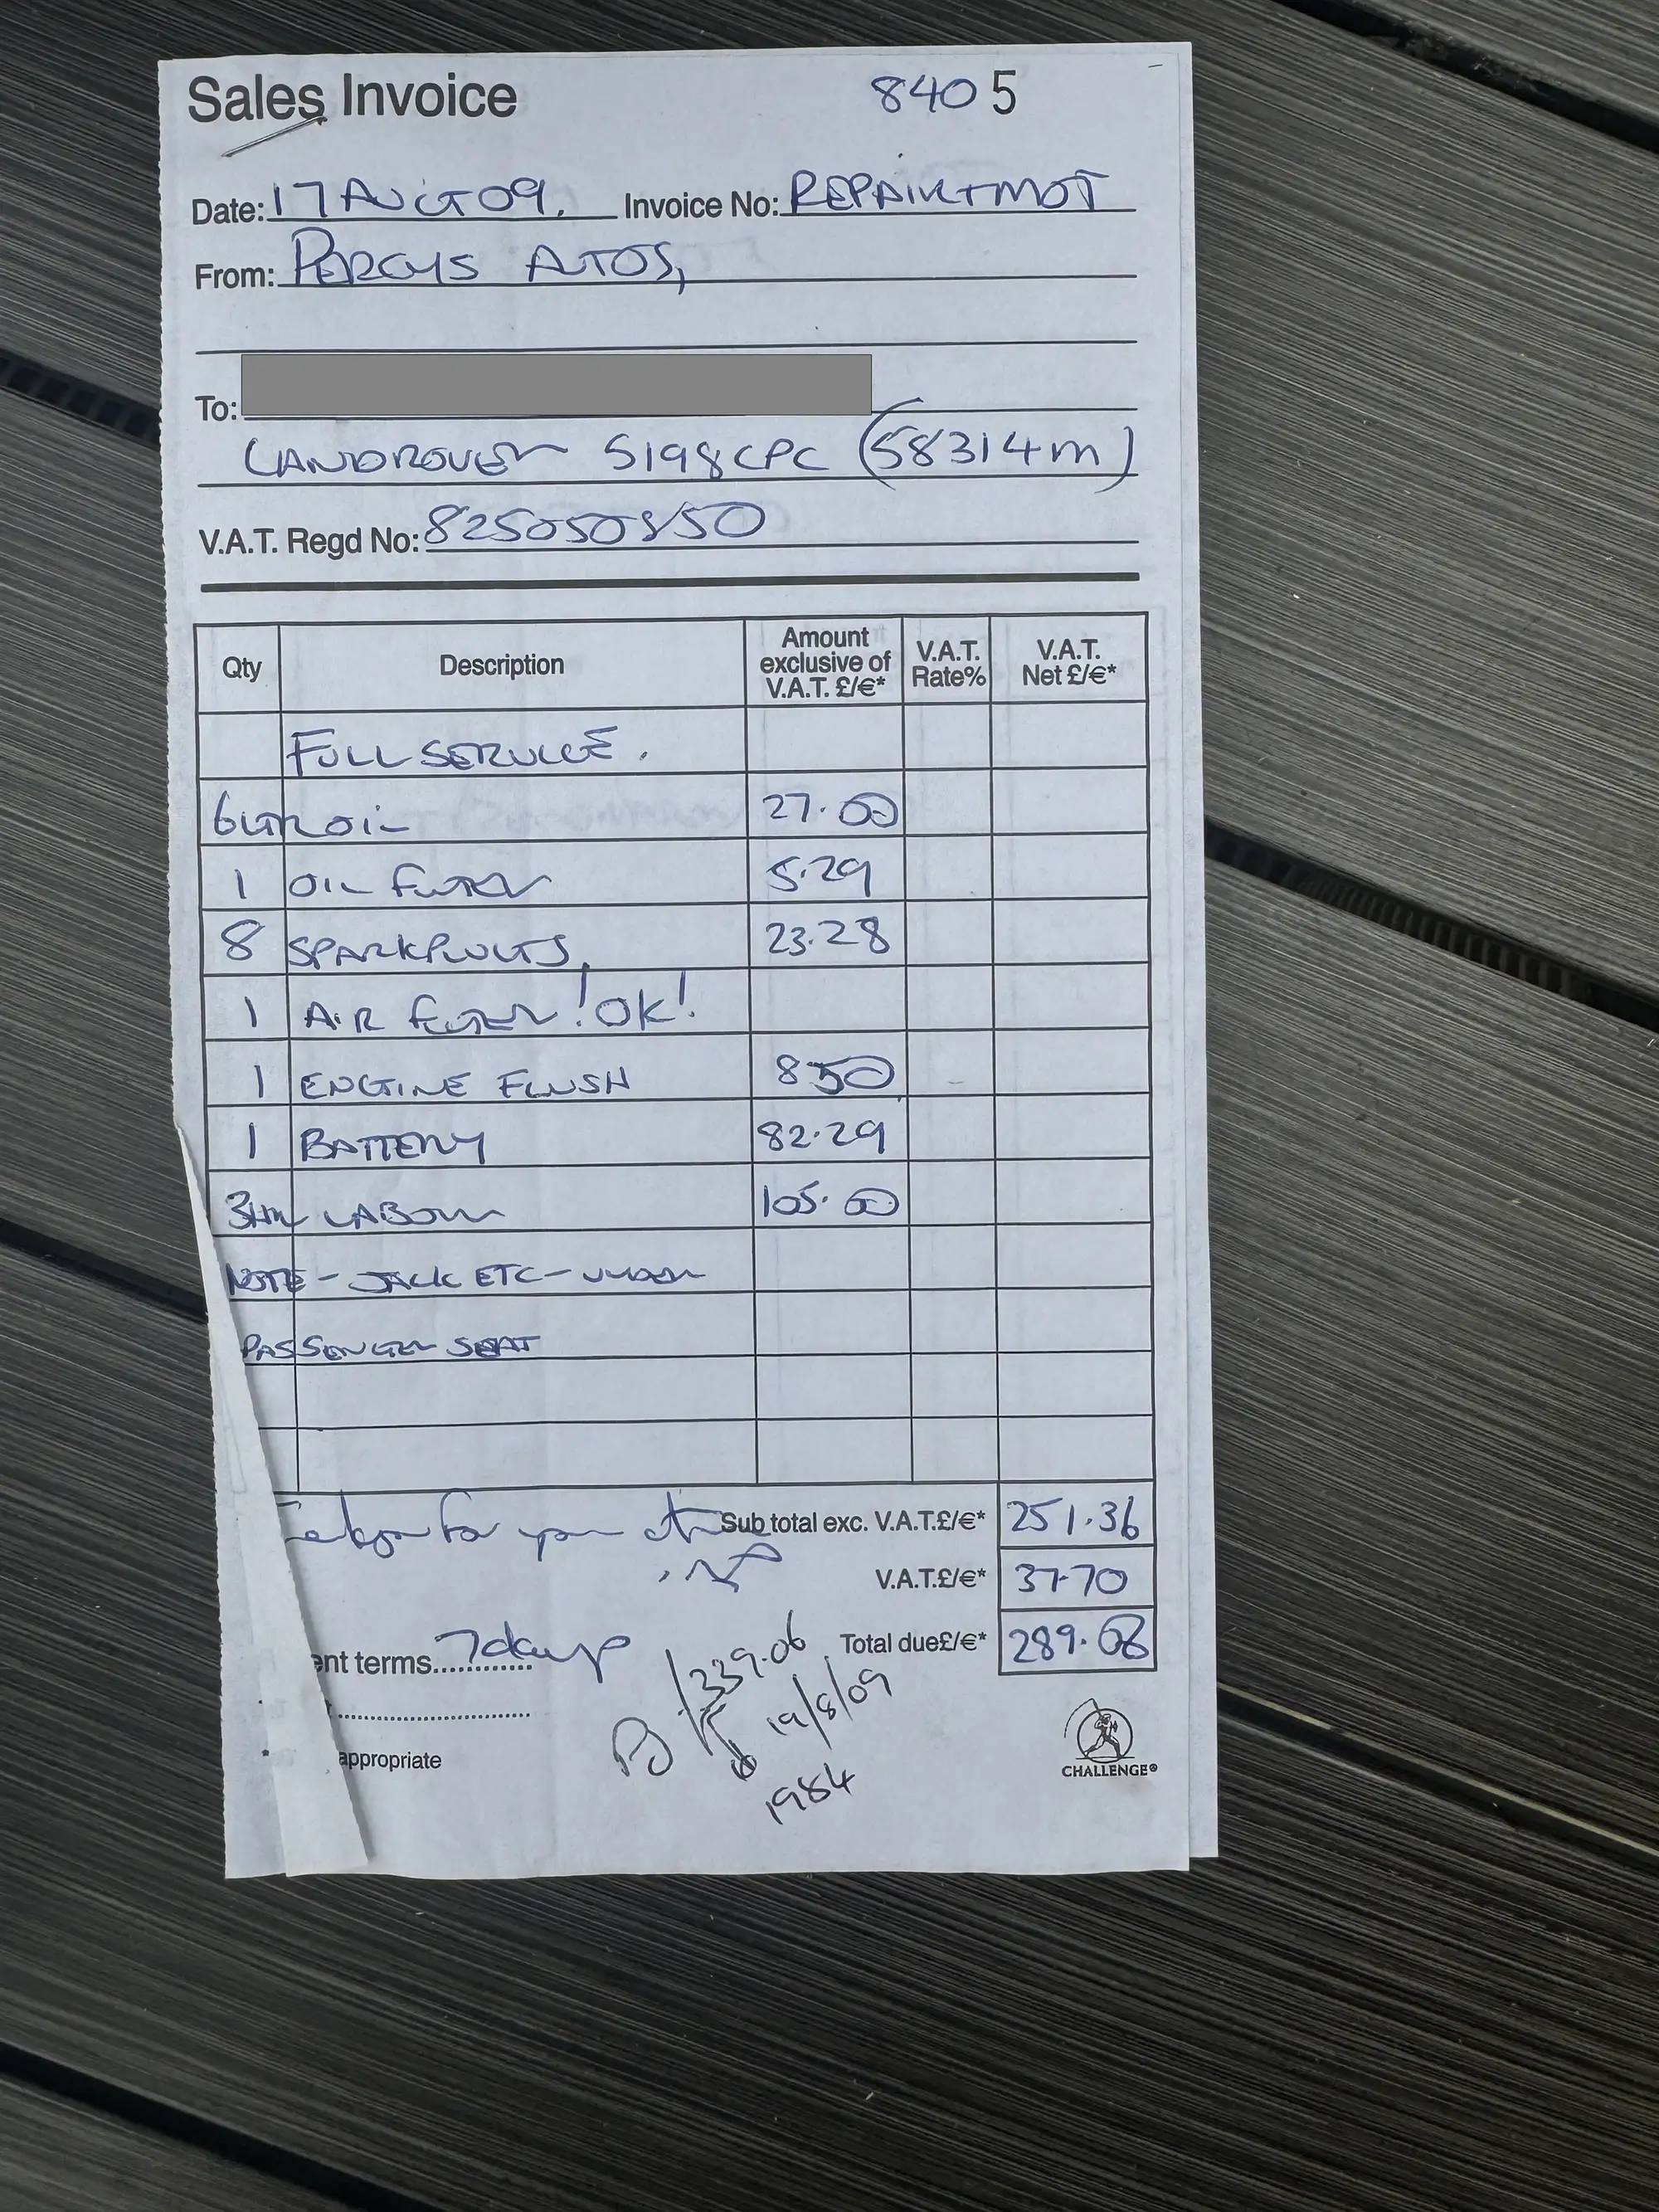 Sales Invoice 8405
Date: 17 AUG 09. Invoice No: REPAIR+MOT
From: PERCYS AUTOS,
To:
LANDROVER S198CPC (58314m)
V.A.T. Regd No: 825050850
Qty Description Amount exclusive of V.A.T. £/€* V.A.T. Rate% V.A.T. Net £/€*
FULL SERVICE.
6LTR OIL 27.00
1 OIL FILTER 5.29
8 SPARKPLUGS, 23.28
1 AIR FILTER !OK!
1 ENGINE FLUSH 8 50
1 BATTERY 82.29
3HR LABOUR 105.00
NOTE - JACK ETC - UNDER
PASSENGER SEAT
for your Sub total exc. V.A.T.£/€* 251.36
V.A.T.£/€* 37.70
Total due£/€* 289.06
ent terms 7 days
339.06
19/8/09
1984
appropriate
CHALLENGE®